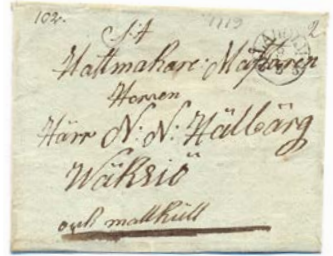 102.
S:T
Hattmakare: Mästaren
Herren
Härr N: N: Hälbärg
Wäksiö
och mallküll